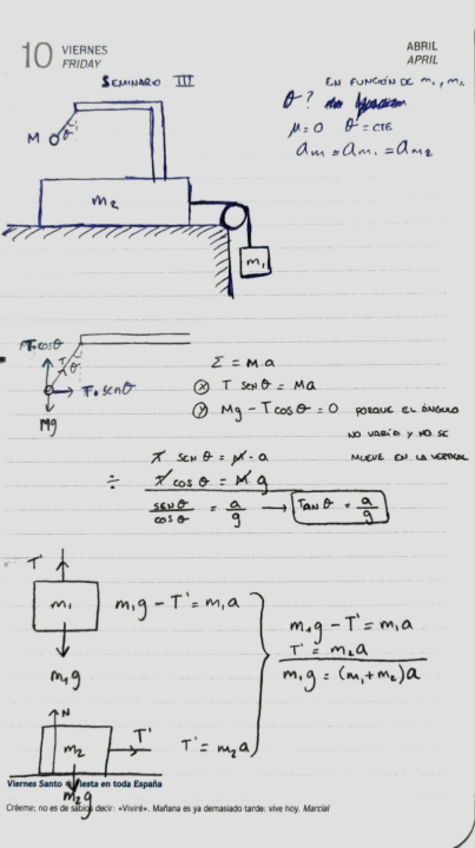 10 VIERNES
FRIDAY
ABRIL
APRIL
SEMINARIO III
EN FUNCIÓN DE m₁, m₂
θ?
μ=0 θ=CTE
am = am₁ = am₂
M θ
m₂
m₁
T·cosθ
T θ
T·senθ
Mg
Σ = M.a
ⓧ T senθ = Ma
ⓨ Mg - Tcosθ = 0 PORQUE EL ÁNGULO
NO VARÍA Y NO SE
MUEVE EN LA VERTICAL
T senθ = M·a
÷ T cosθ = M g
senθ/cosθ = a/g → Tanθ = a/g
T'
m₁
m₁g - T' = m₁a
m₁g
m₁g - T' = m₁a
T' = m₂a
m₁g = (m₁+m₂)a
N
m₂
T'
T' = m₂a
m₂g
Viernes Santo Fiesta en toda España
Créeme; no es de sabios decir: «Viviré». Mañana es ya demasiado tarde: vive hoy. Marcial